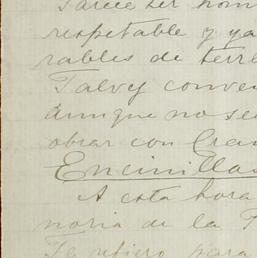 Parece ser hom
respetable y ya
rables de terre
Talvez conven
aunque no se
obrar con Cra
Encinillas
A esta hora
moria de la T
Te refiero para